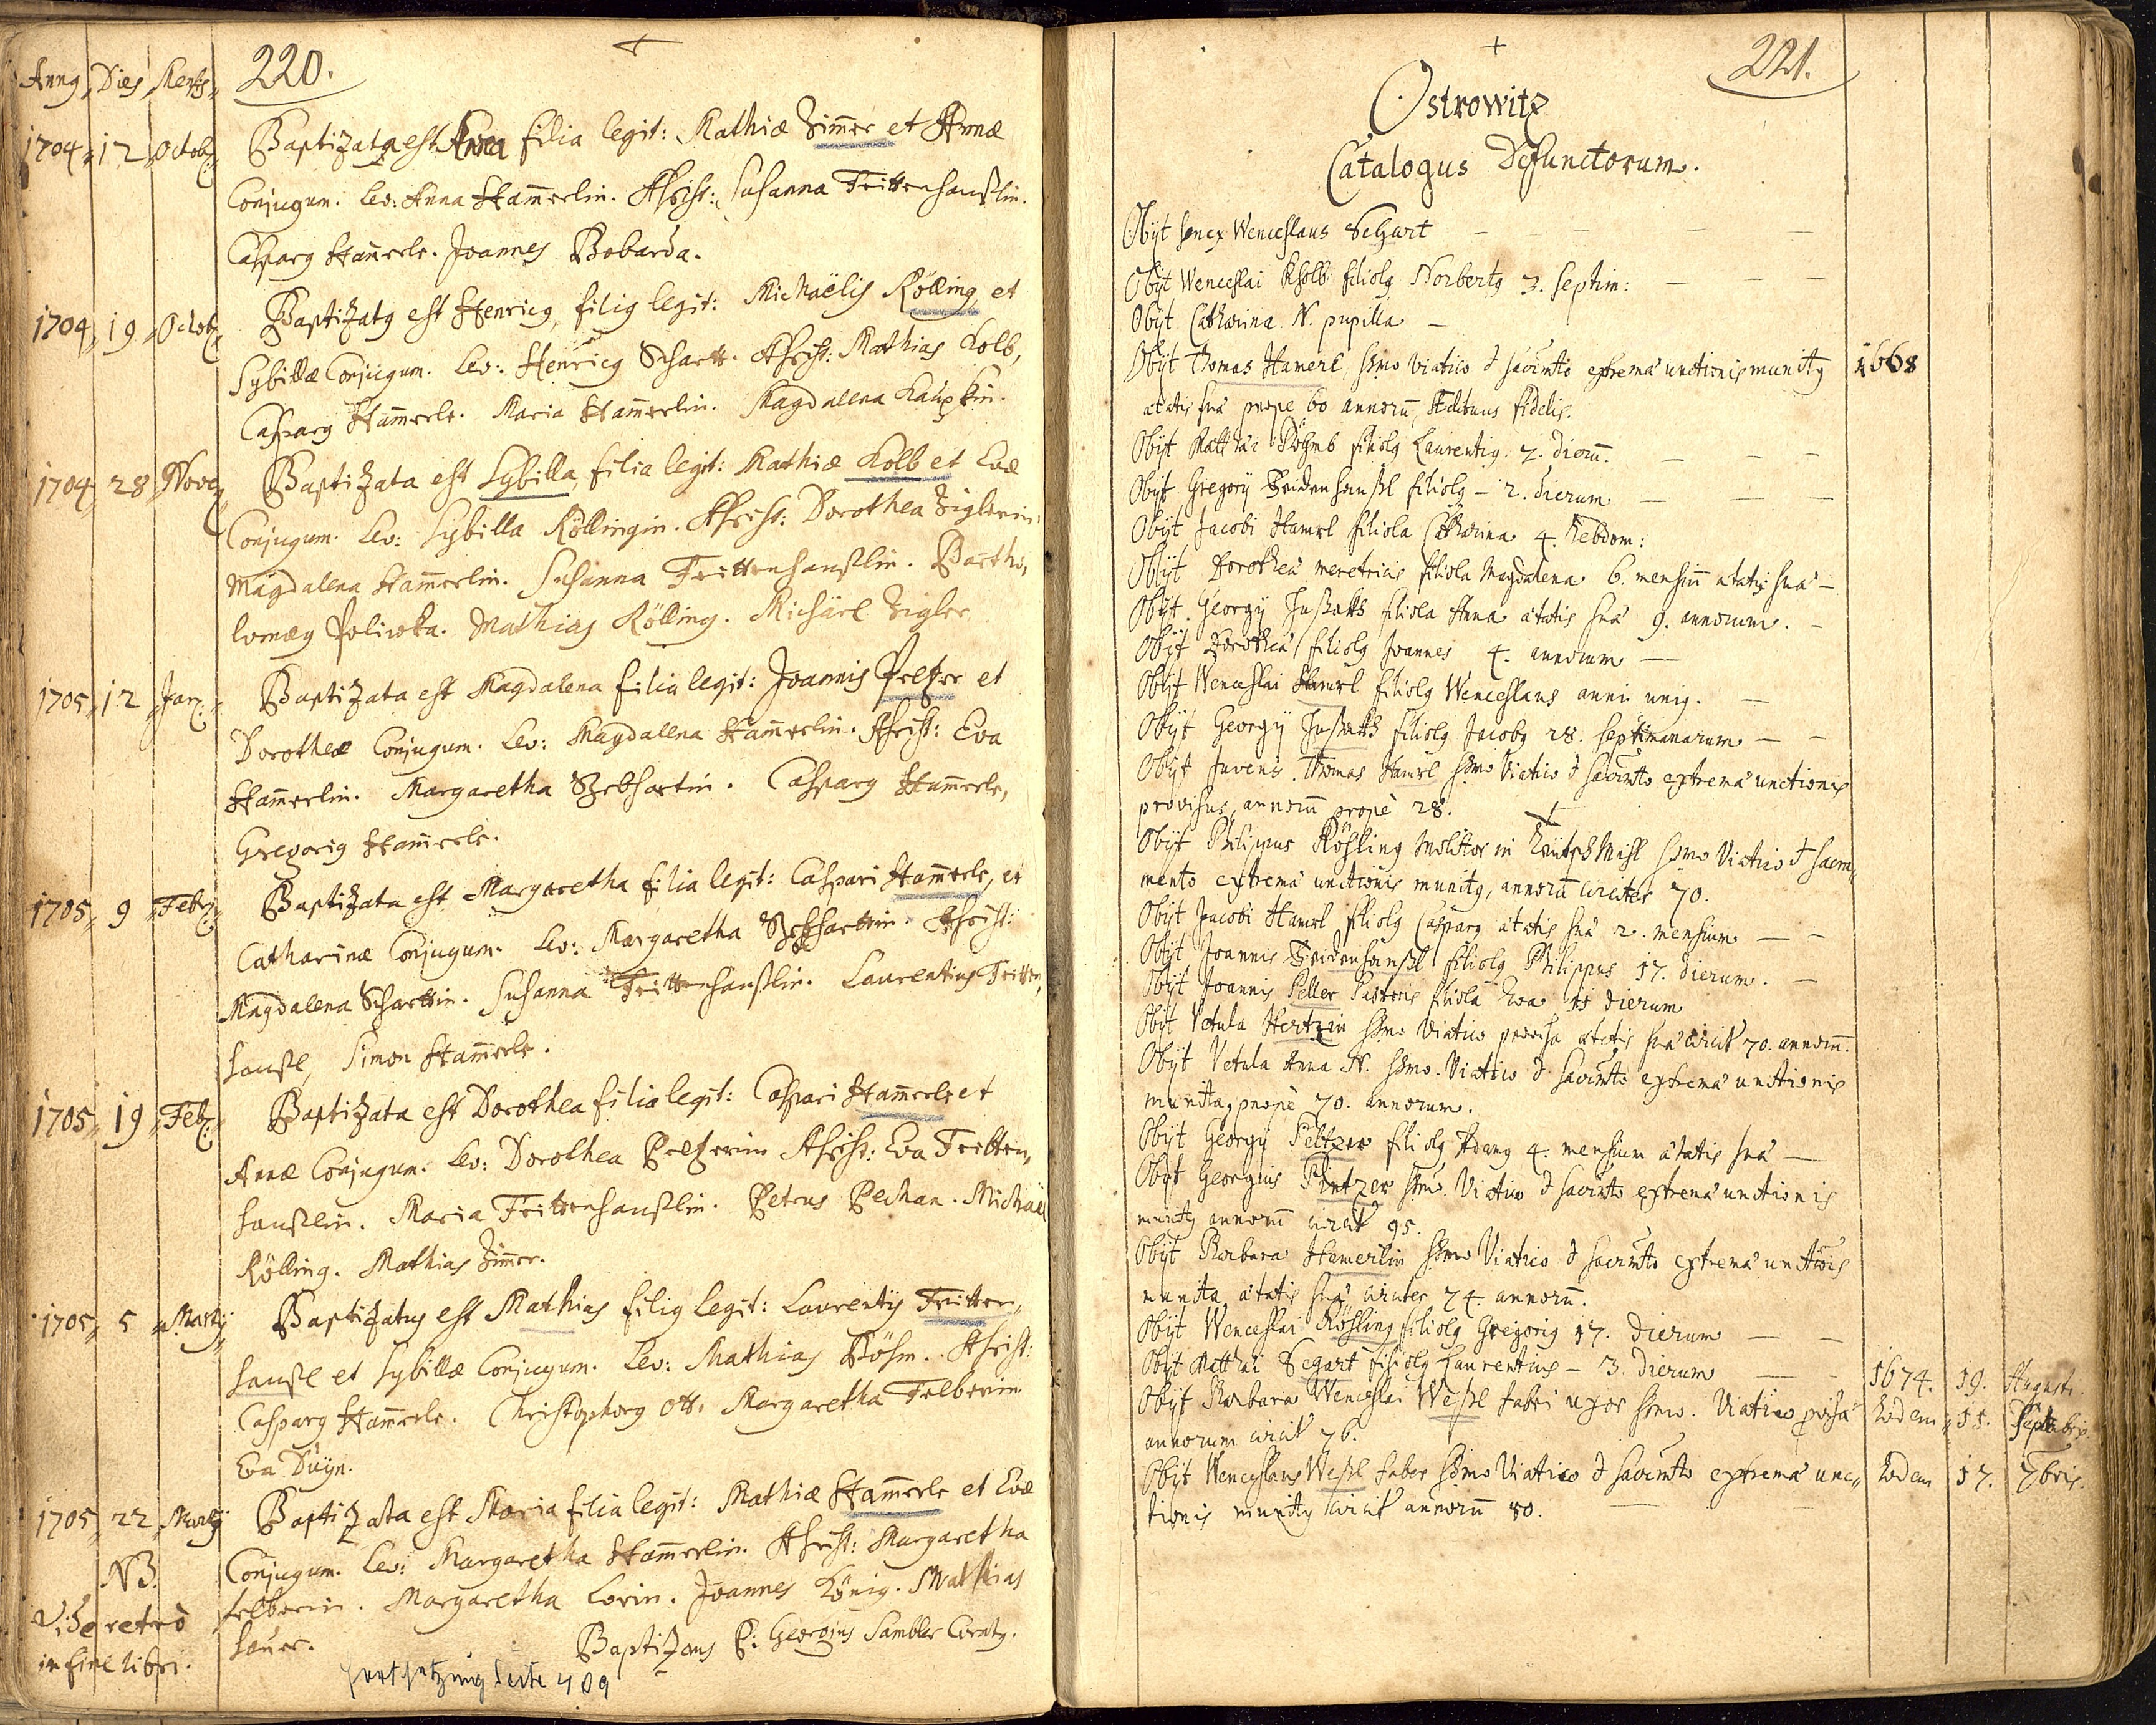 Annq Dies Mens
220.
1704 12 Octob: Baptizata est Anna filia legit: Mathiæ Zimer et Annæ
Conjugum. Lev: Anna Hamerlin. Assist: Susanna Trittenhanßlin.
Casparq Hamerle. Joannes Bobarda.
1704 19 Octob: Baptizatq est Henricq, filiq legit: Michaëlis Rölling, et
Sybillæ Conjugum. Lev: Henricq Schartt. Assist: Mathias Kolb,
Casparq Hamerle. Maria Hamerlin. Magdalena
1704 28 Nove Baptizata est Sybilla, filia legit: Mathiæ Kolb et Evæ
Conjugum. Lev: Sybilla Röllingin. Assist: Dorothea Siglerin
Magdalena Hamerlin. Susanna Trittenhanßlin. Bartho,
lomæq Poliwka. Mathias Rölling. Michäel Sigler
1705 12 Jan: Baptizata est Magdalena filia legit: Joannis Peltzer et
Dorotheæ Conjugum. Lev: Magdalena Hamerlin. Assist: Eva
Hamerlin. Margaretha Casparq Hamerle,
Gregoriq Hamerle.
1705 9 Febr: Baptizata est Margaretha filia legit: Caspari Hamerle, et
Catharinæ Conjugum. Lev: Margaretha Assist:
Magdalena Scharttin. Susanna Trittenhanßlin. Laurentius Tritten,
hanßl, Simon Hamerle.
1705 19 Feb: Baptizata est Dorothea filia legit: Caspari Hamerle et
Annæ Conjugum. Lev: Dorothea Peltzerin Assist: Eva Tritten,
hanßlin. Maria Trittenhanßlin. Petrus Pechan. Michäel
Rölling. Mathias Zimer.
1705 5 Martÿ Baptizatus est Mathias filiq legit: Laurentÿ Tritten,
hanßl et Sybillæ Conjugum. Lev: Mathias Böhm. Assist:
Casparq Hamerle. Christophorq Ott. Margaretha Felberin
Eva
1705 22 Martÿ Baptizata est Maria filia legit: Mathiæ Hamerle et Evæ
NB. Conjugum. Lev: Margaretha Hamerlin. Assist: Margaretha
Vide retrò Felberin. Margaretha Lorin. Joannes König. Mathias
in fine libri. Hauer. Baptizans P: Georgius Sambler Curatq.
Fortsetzung Seite 409
221.
Ostrowitz
Catalogus Defunctorum.
Obÿt senex Wenceslaus Selzart
Obÿt Wenceslai Kholb filiolq Norbertq 3. septim:
Obÿt Catharina N. pupilla
Obÿt Thomas Hamerl, ssmo Viatico & sacrmto extremæ unctionis munitq 1668
ætatis suæ prope 60 annorū, fidelis.
Obÿt Matthæi Böhmb filiolq Laurentiq. 7. dierū.
Obÿt Gregorÿ Tridenhanßl filiolq - 2. dierum
Obÿt Jacobi Hamrl filiola Catharina 4. hebdom:
Obÿt Dorotheæ meretricis filiola Magdalena 6. mensiū ætatis suæ
Obÿt Georgÿ filiola Anna ætatis suæ 9. annorum.
Obÿt Dorotheæ filiolq Joannes 4. annorum
Obÿt Wenceslai Hamrl filiolq Wenceslaus anni uniq.
Obÿt Georgÿ filiolq Jacobq 28. septimanarum
Obÿt Juvenis Thomas Hamrl ssmo Viatico & sacrmto extremæ unctionis
provisus, annorū propè 28.
Obÿt Philippus Röhling Molitor in ssmo Viatico & sacra,
mento extremæ unctionis munitq, annorū circiter 70.
Obÿt Jacobi Hamrl filiolq Casparq ætatis suæ 2. mensium
Obÿt Joannis Tridenhanßl filiolq Philippus 17. dierum.
Obÿt Joannis Peller Pastoris filiola Eva dierum
Obÿt Vetula Hertzin ssmo Viatico provisa ætatis suæ circit 70. annorū.
Obÿt Vetula Anna N. ssmo Viatico & sacrmto extremæ unctionis
munita, propè 70. annorum.
Obÿt Georgÿ Peltzer filiolq Adamq 4. mensium ætatis suæ
Obÿt Georgius Pintzer ssmo Viatico & sacrmto extremæ unctionis
munitq annorū circit 95.
Obÿt Barbara Hamerlin ssmo Viatico & sacrmto extremæ unctiois
munita ætatis suæ circiter 74. annorū.
Obÿt Wenceslai Röhling filiolq Gregoriq 17. dierum
Obÿt Matthæi Segart filiolq Laurentius - 3. dierum 1674. 19. Augusti.
Obÿt Barbara Wenceslai Weßl fabri uxor ssmo Viatico pvisa Eodem 11. Septebris.
annorum circit 76.
Obÿt Wenceslaus Weßl faber ssmo Viatico & sacrmto extremæ unc, Eodem 17. 7bris.
tionis munitq circit annorū 80.